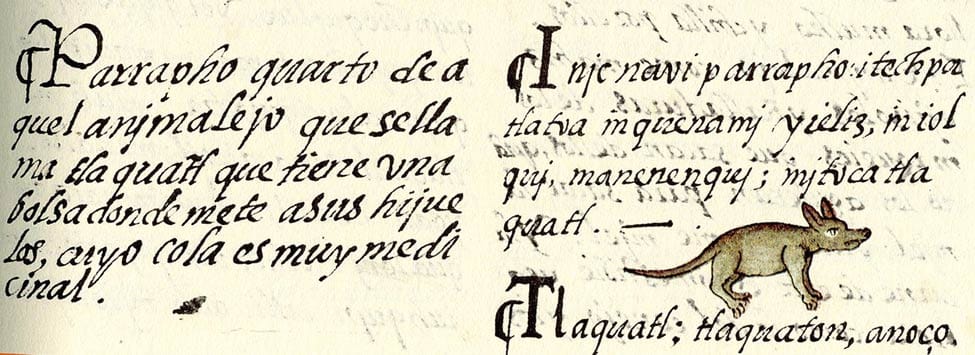 ¶ Parrapho quarto de a
quel anjmalejo que sella
ma tlaquatl que tiene vna
bolsa donde mete asus hijue
los, cuyo cola es muy medi
cinal.
¶ Injc navi parrapho: itechpa
tlatva in quenamj yieliz, in iol
quj, manenenquj; mjtvca tla
quatl. —
¶ Tlaquatl; tlaquaton, anoço.